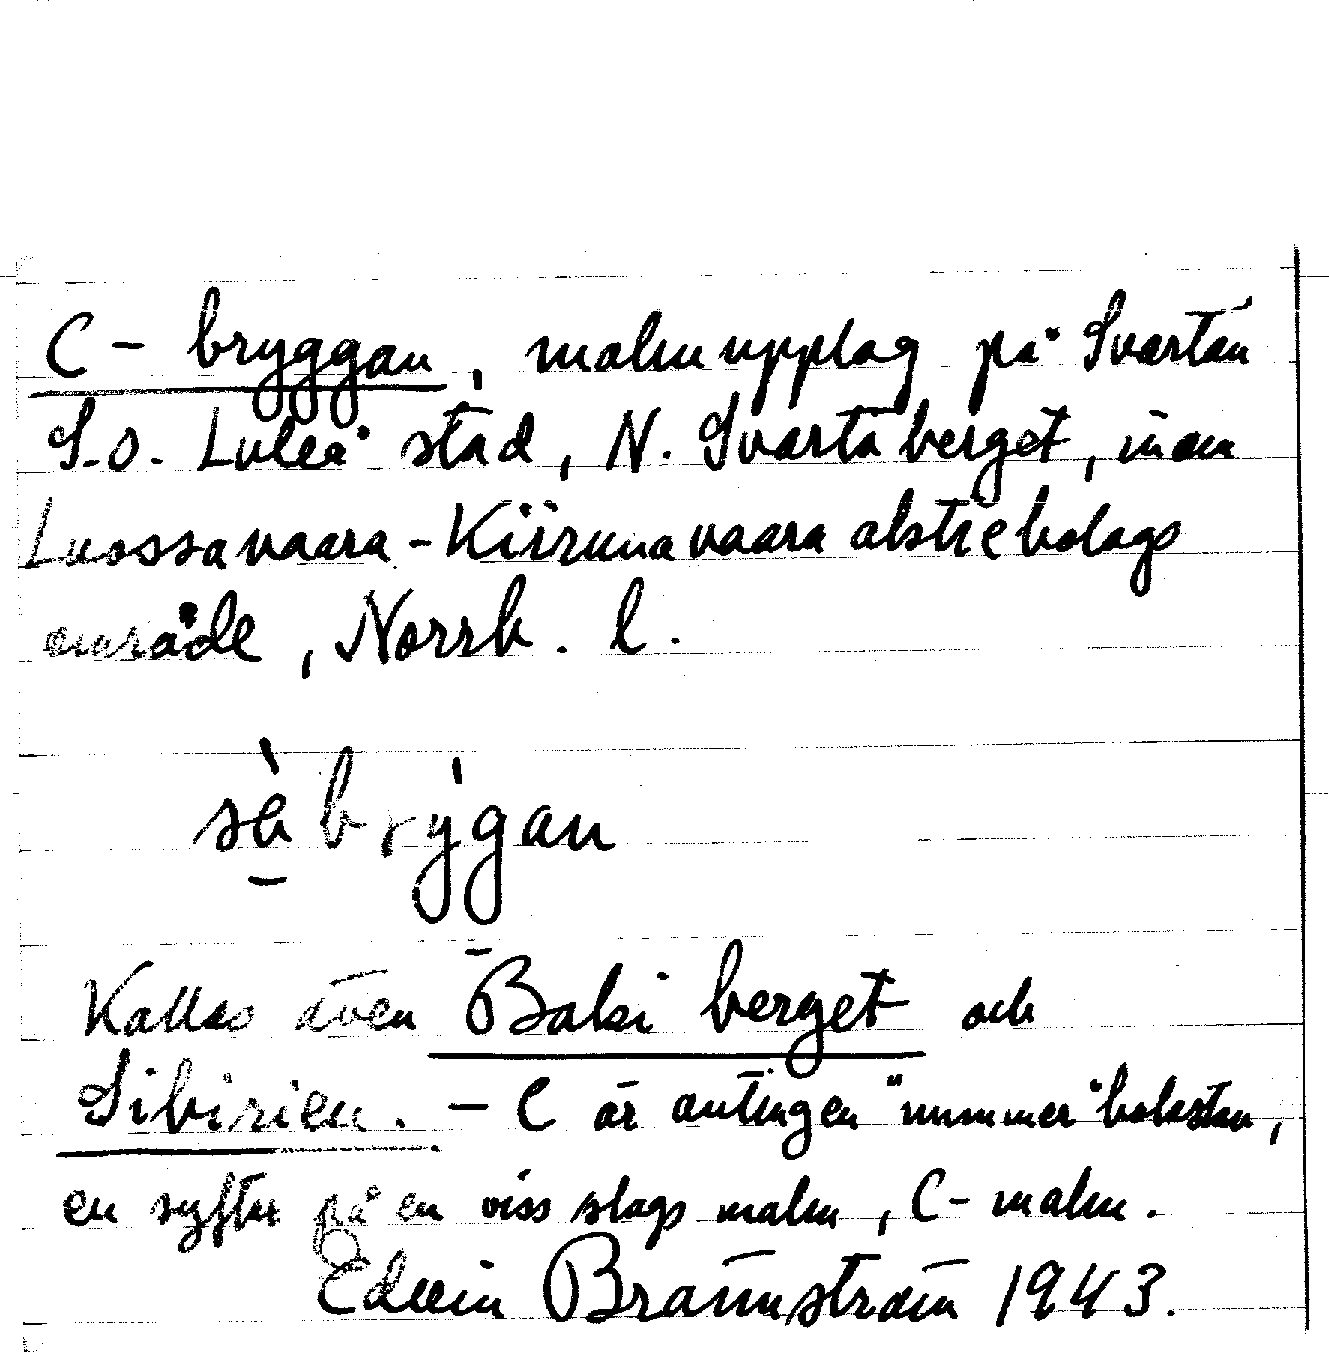 C-bryggan, malmupplag på Svartön
S.O. Luleå stad, N. Svartöberget, inom
Luossavaara-Kiirunavaara aktiebolags
område, Norrb. l.
sè brỳgan
Kallas även Baki berget och
Sibirien. - C är antingen "nummer"bokstav,
en syftn på en viss slags malm, C-malm.
Edwin Brännström 1943.